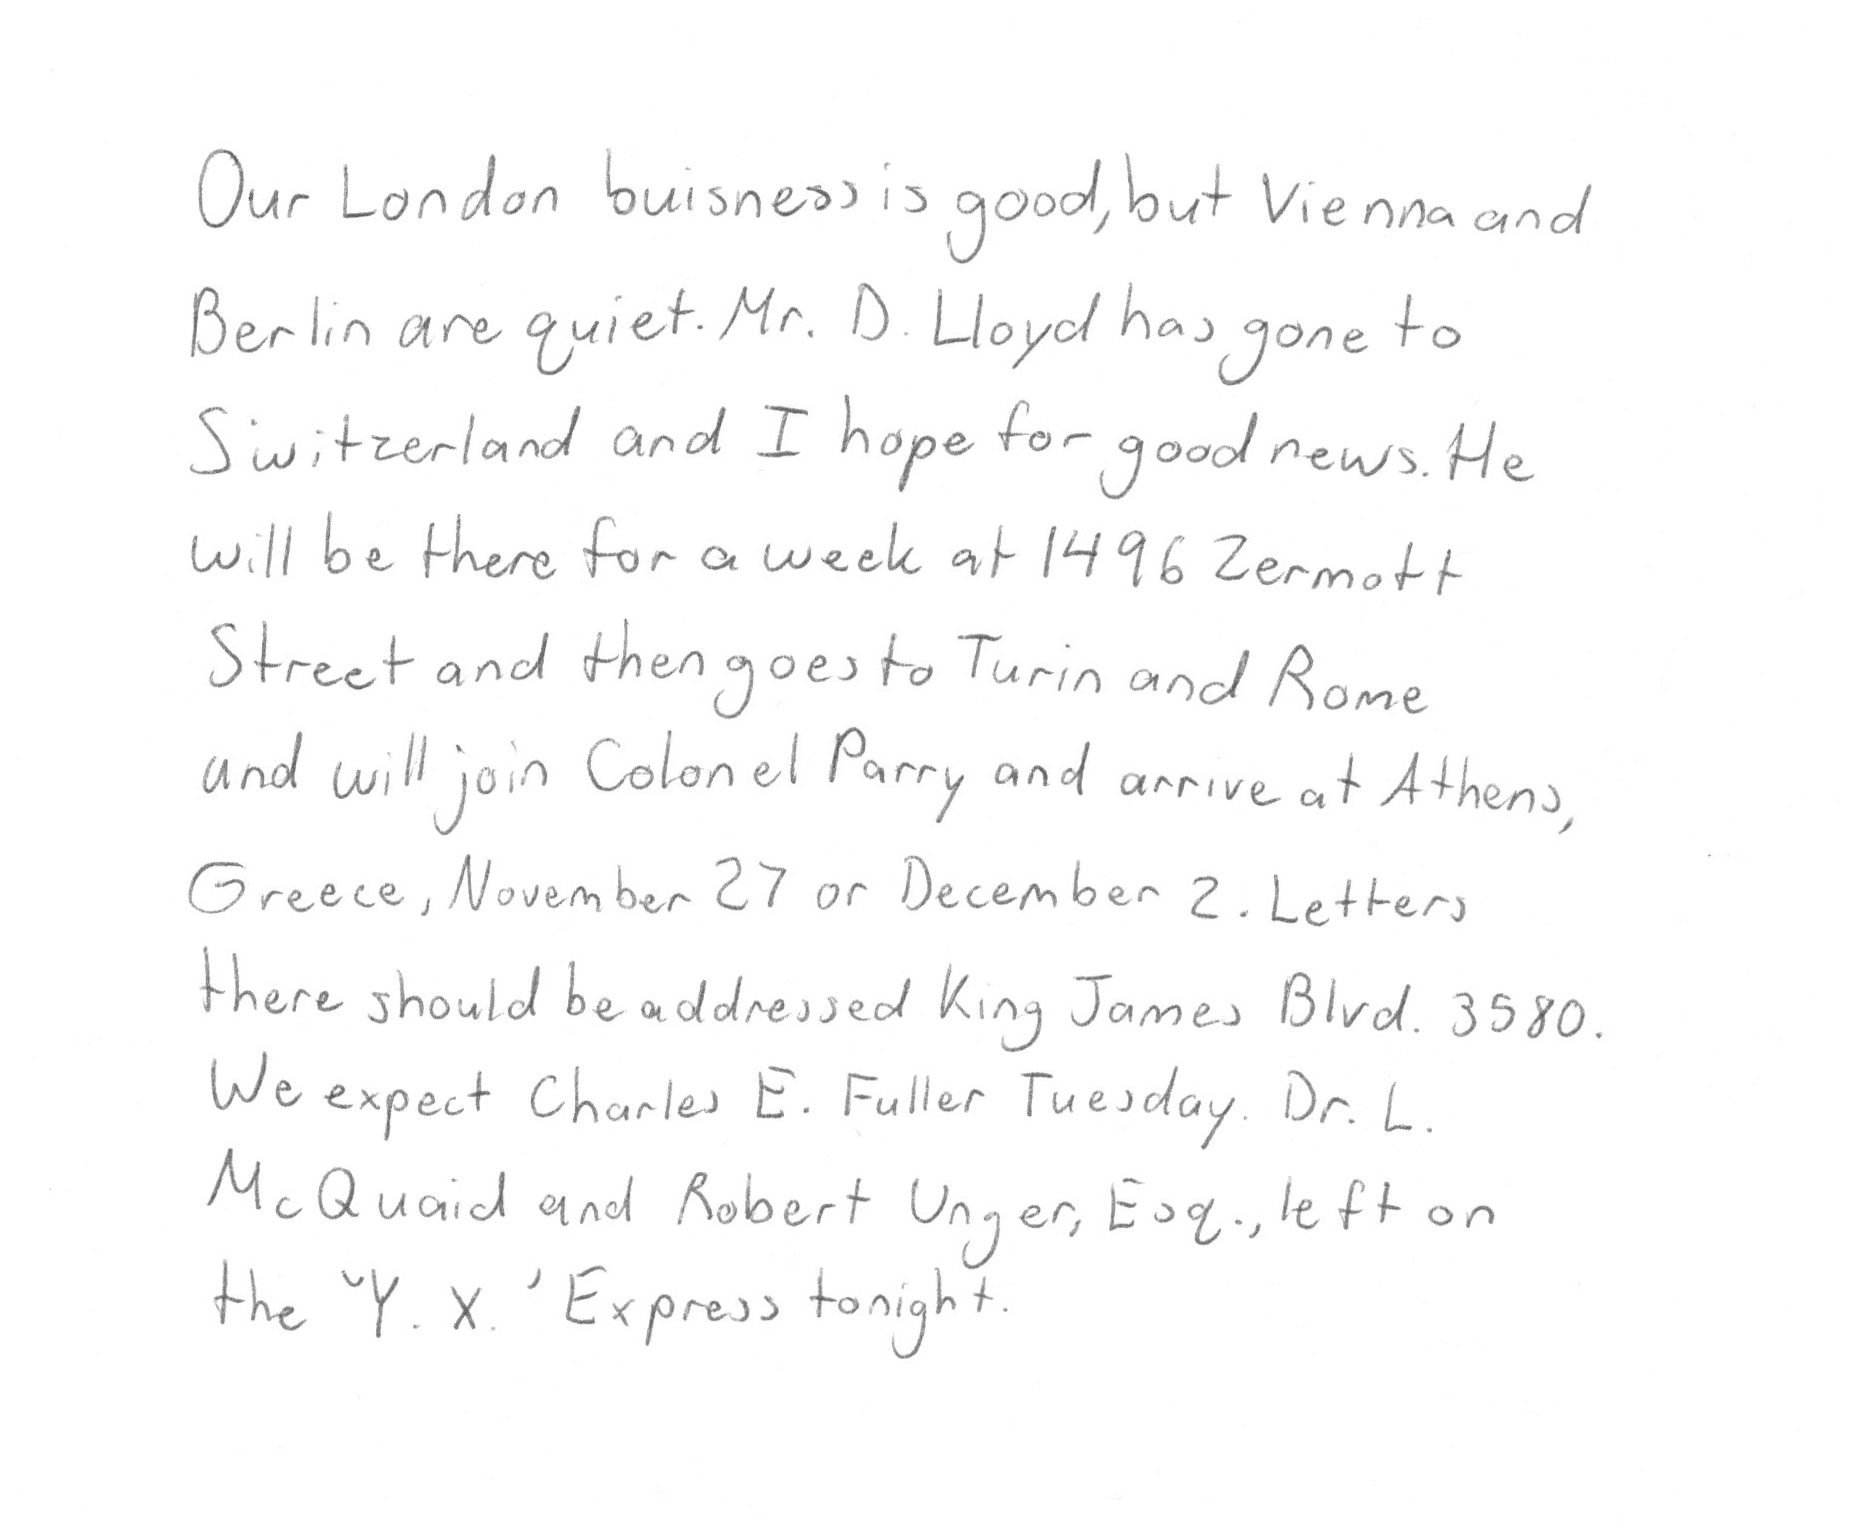 Our London buisness is good, but Vienna and
Berlin are quiet. Mr. D. Lloyd has gone to
Switzerland and I hope for good news. He
will be there for a week at 1496 Zermott
Street and then goes to Turin and Rome
and will join Colonel Parry and arrive at Athens,
Greece, November 27 or December 2. Letters
there should be addressed King James Blvd. 3580.
We expect Charles E. Fuller Tuesday. Dr. L.
McQuaid and Robert Unger, Esq., left on
the "Y. X.' Express tonight.